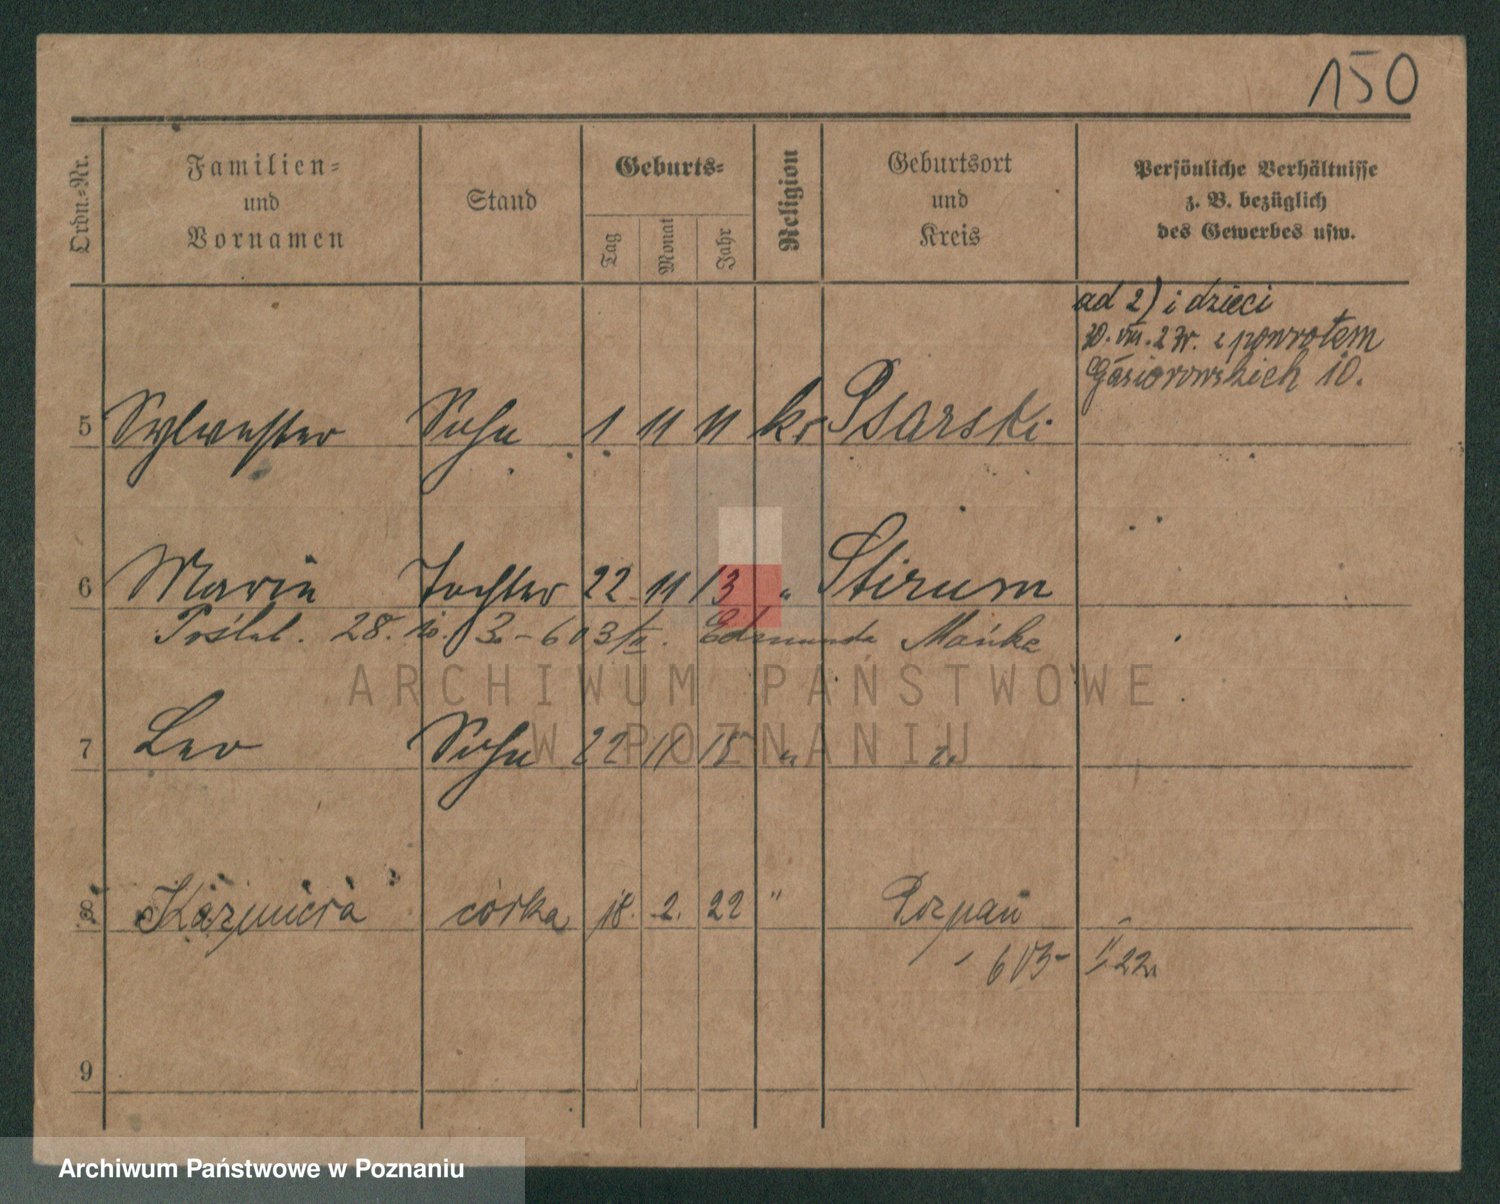 150
Ordn.-Nr.
Familien-
und
Vornamen
Stand
Geburts-
Tag
Monat
Jahr
Religion
Geburtsort
und
Kreis
Persönliche Verhältnisse
z. B. bezüglich
des Gewerbes usw.
ad 2) i dzieci
30. VIII. 23r. z powrotem
Gąsiorowskich 10.
5 Sylvester Sohn 1 11 11 Psarski
6 Marie Tochter 22 11 13 " Stirum
Poślub. 28. 10. 3 - 603/II. Edmunda Mańka
ARCHIWUM PAŃSTWOWE
7 Leo Sohn 22 11 15 " "
W POZNANIU
8 Kazimiera córka 18. 2. 22 " Poznań
603- 22r
9
Archiwum Państwowe w Poznaniu